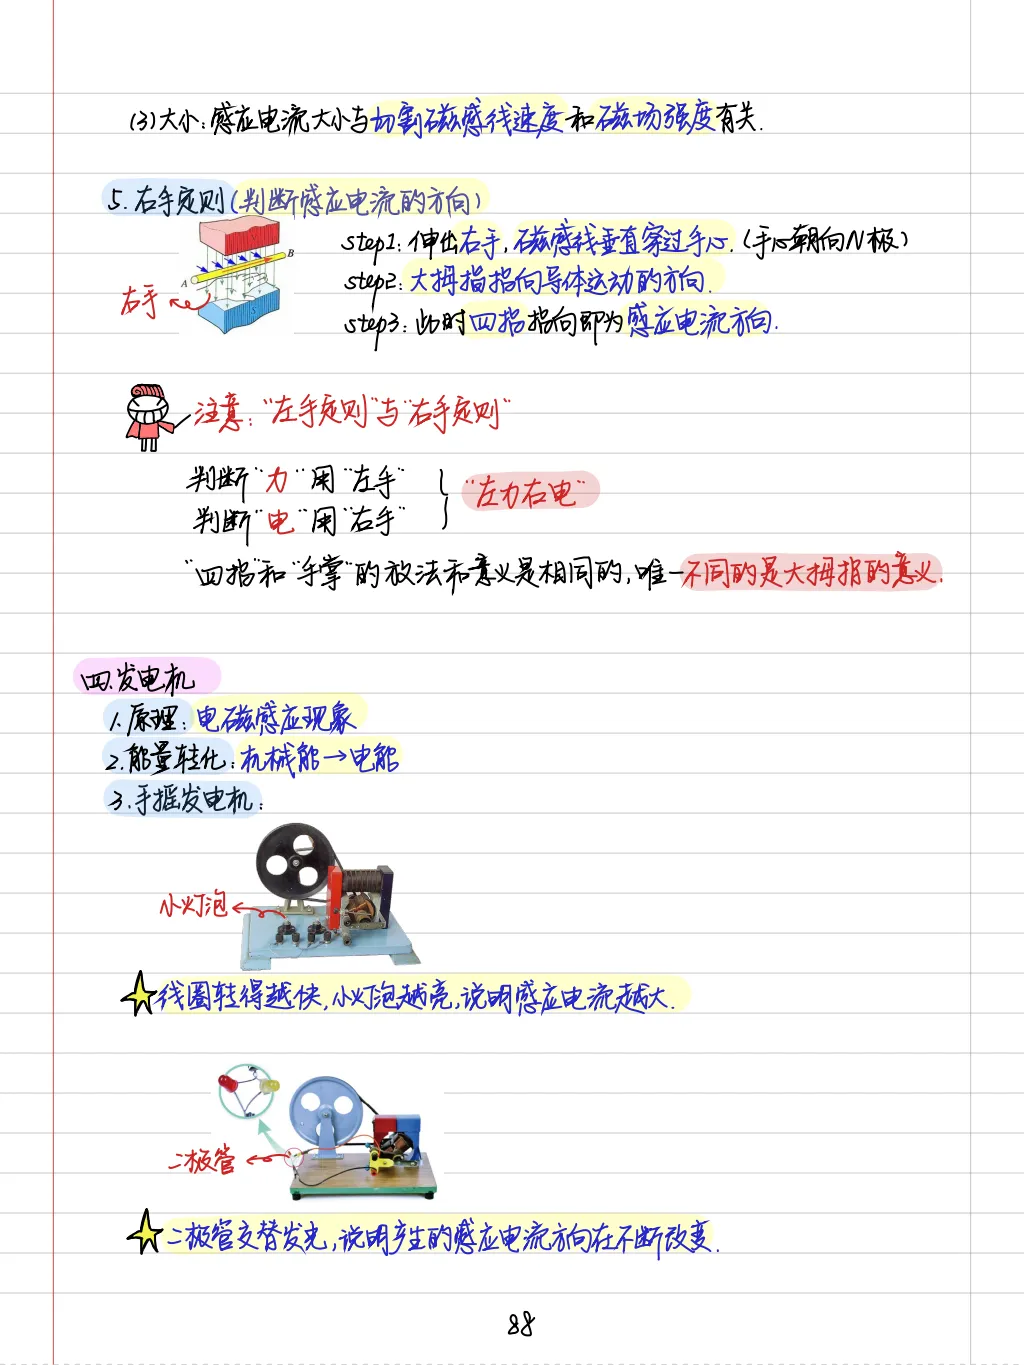 (3)大小:感应电流大小与切割磁感线速度和磁场强度有关.
5.右手定则(判断感应电流的方向)
step1:伸出右手,磁感线垂直穿过手心.(手心朝向N极)
step2:大拇指指向导体运动的方向.
step3:此时四指指向即为感应电流方向.
A
B
S
右手
注意:"左手定则"与"右手定则"
判断"力"用"左手"
判断"电"用"右手"
"左力右电"
"四指"和"手掌"的放法和意义是相同的,唯一不同的是大拇指的意义.
四.发电机
1.原理:电磁感应现象
2.能量转化:机械能→电能
3.手摇发电机:
小灯泡
线圈转得越快,小灯泡越亮,说明感应电流越大.
二极管
二极管交替发光,说明产生的感应电流方向在不断改变.
88